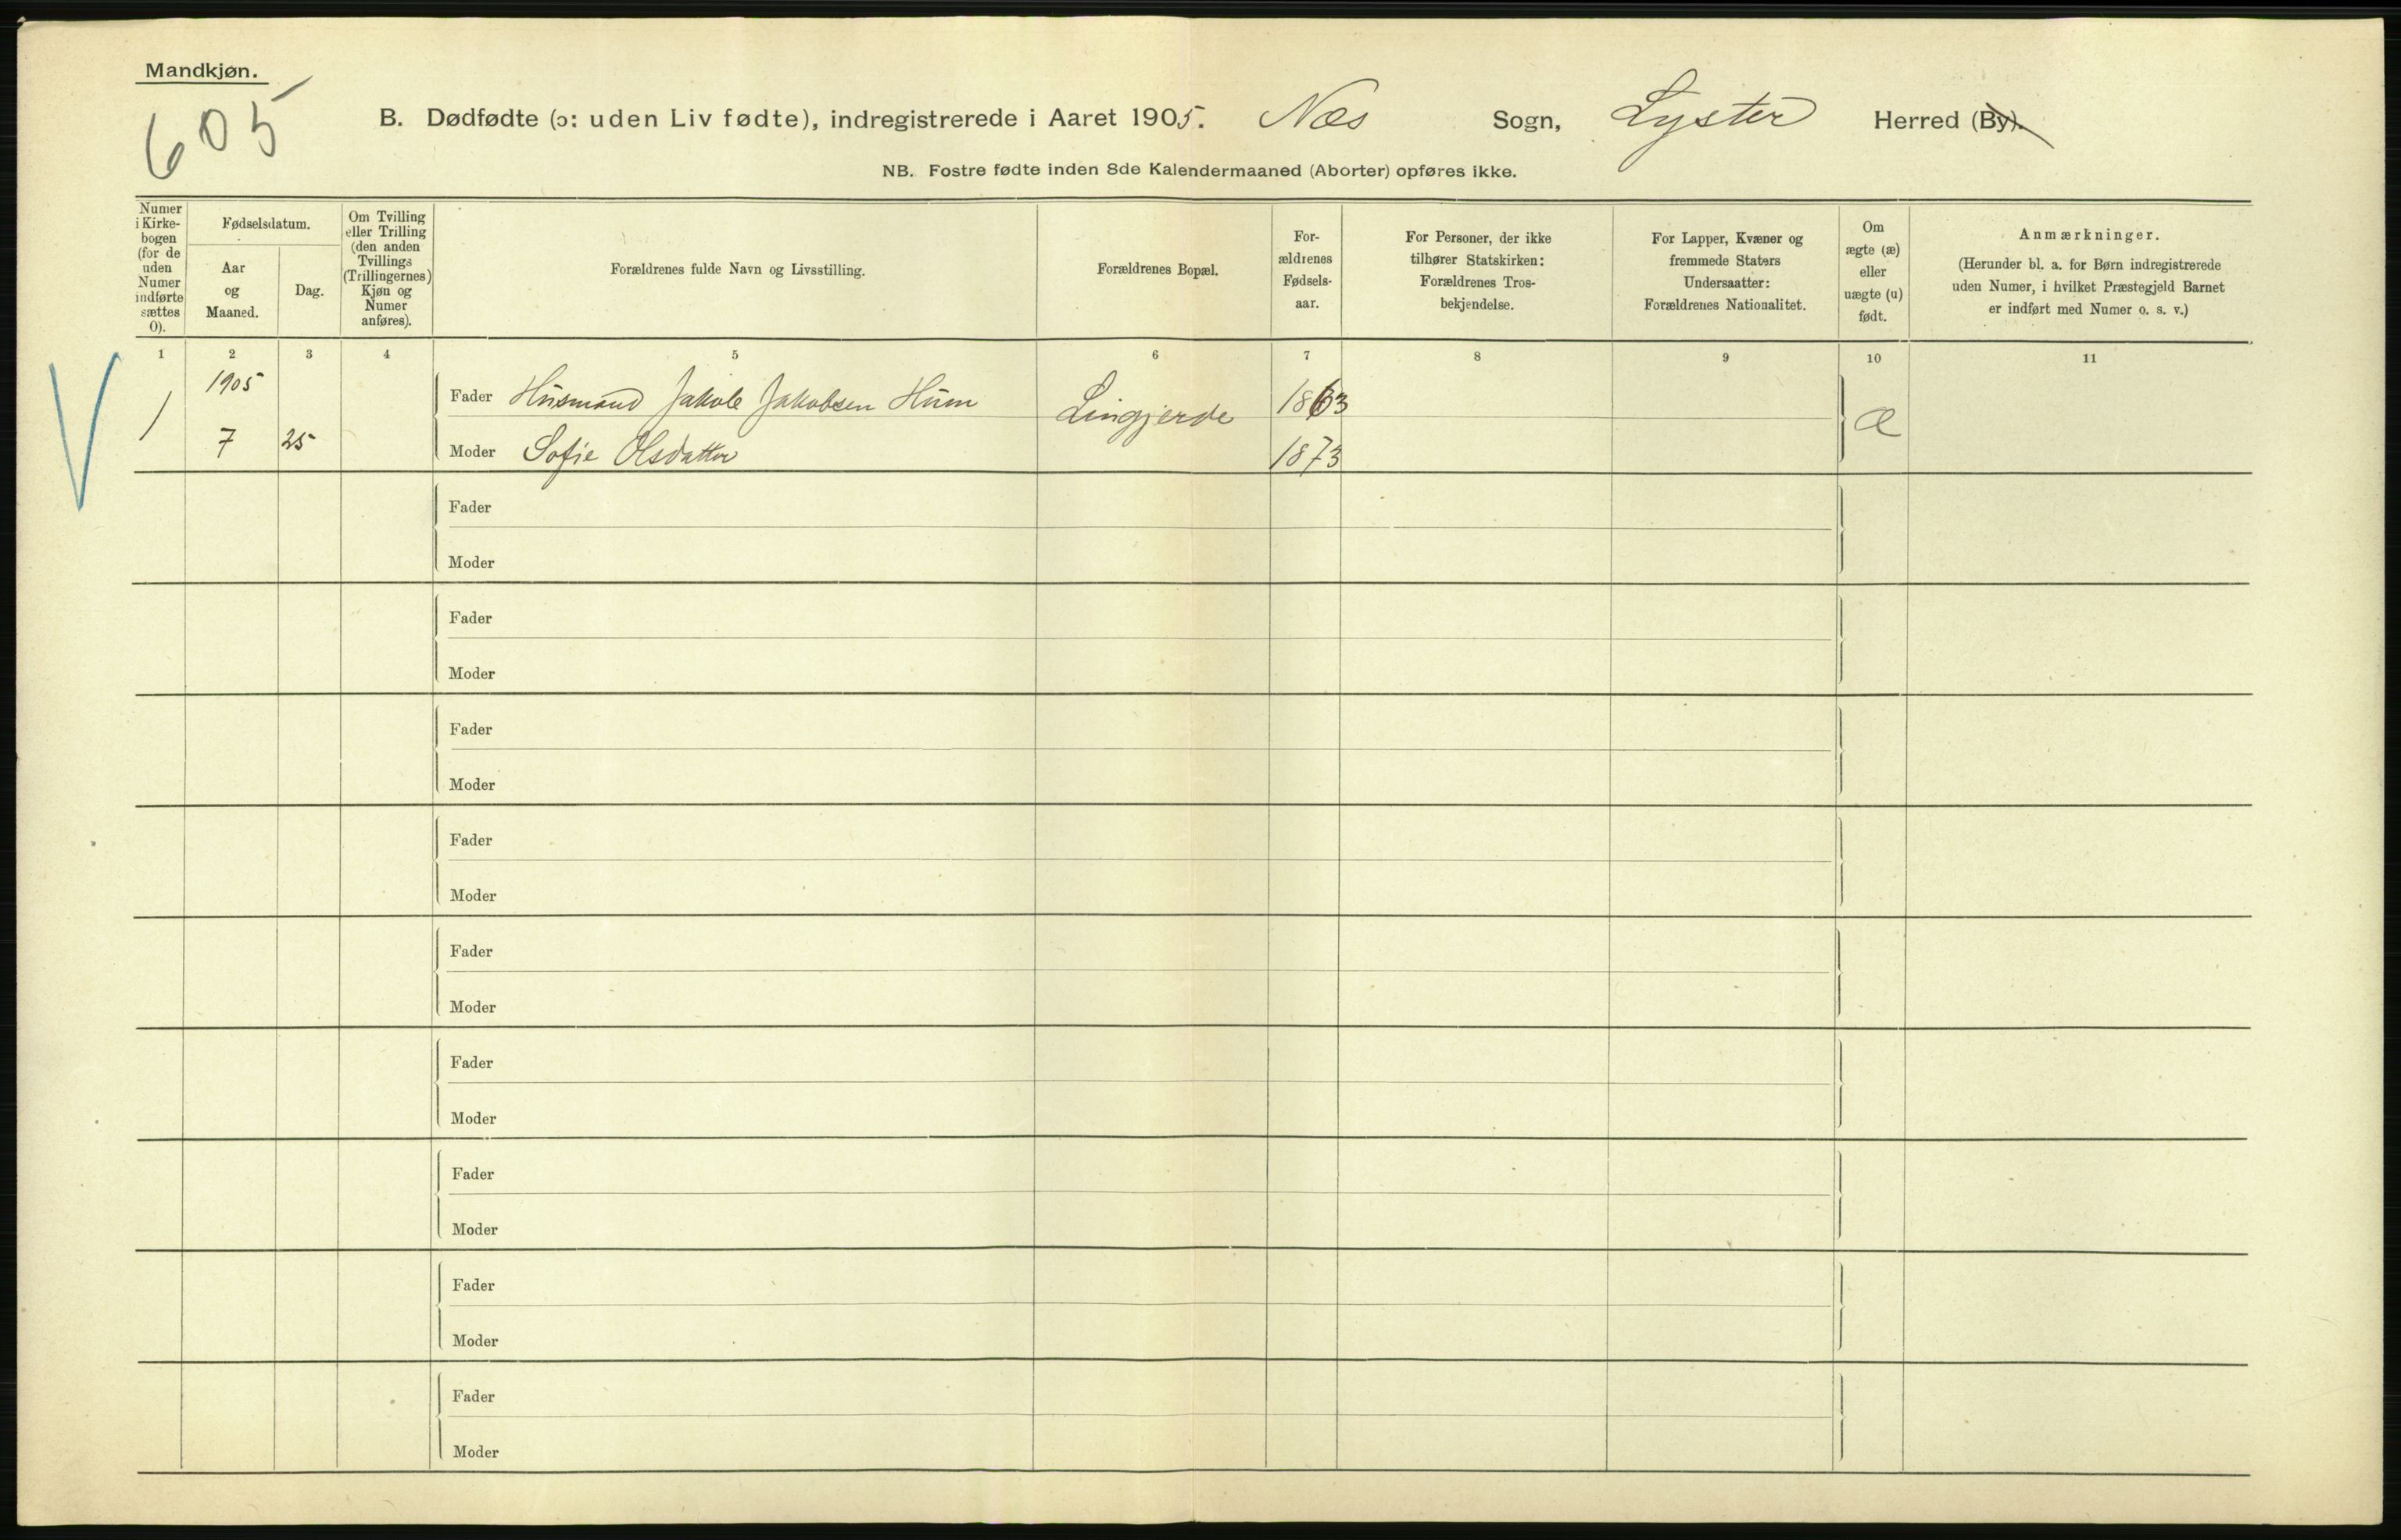 Mandkjøn.
605
B. Dødfødte (ɔ: uden Liv fødte), indregistrerede i Aaret 1905. Næs Sogn, Lyster Herred (By).
NB. Fostre fødte inden 8de Kalendermaaned (Aborter) opføres ikke.
Numer
i Kirke-
bogen
(for de
uden
Numer
indførte
sættes
0).
Fødselsdatum.
Aar
og
Maaned.
Dag.
Om Tvilling
eller Trilling
(den anden
Tvillings
(Trillingernes)
Kjøn og
Numer
anføres).
Forældrenes fulde Navn og Livsstilling.
Forældrenes Bopæl.
For-
ældrenes
Fødsels-
aar.
For Personer, der ikke
tilhører Statskirken:
Forældrenes Tros-
bekjendelse.
For Lapper, Kvæner og
fremmede Staters
Undersaatter:
Forældrenes Nationalitet.
Om
ægte (æ)
eller
uægte (u)
født.
Anmærkninger.
(Herunder bl. a. for Børn indregistrerede
uden Numer, i hvilket Præstegjeld Barnet
er indført med Numer o. s. v.)
1 2 3 4 5 6 7 8 9 10 11
1905
Fader Husmand Jakob Jakobsen Hum Lingjerde 1863
1 7 25 Moder Sofie Olsdatter 1873 Æ
Fader
Moder
Fader
Moder
Fader
Moder
Fader
Moder
Fader
Moder
Fader
Moder
Fader
Moder
Fader
Moder
Fader
Moder